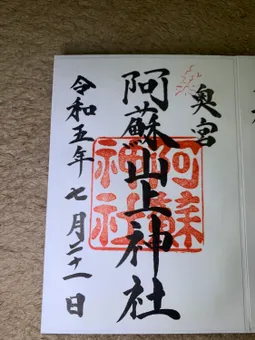 奥宮
阿蘇山上神社
令和五年七月二十一日
阿蘇
神社